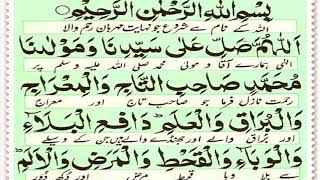 بِسْمِ اللهِ الرَّحْمٰنِ الرَّحِيْمِ
اللہ کے نام سے شروع جو نہایت مہربان رحم والا
اَللّٰهُمَّ صَلِّ عَلٰى سَيِّدِنَا وَمَوْلٰنَا
الٰہی ہمارے آقا و مولیٰ محمد صلی اللہ علیہ وسلم پر
مُحَمَّدٍ صَاحِبِ التَّاجِ وَالْمِعْرَاجِ
رحمت نازل فرما جو صاحب تاج اور معراج
وَالْبُرَاقِ وَالْعَلَمِ ؕ دَافِعِ الْبَلَآءِ
اور براق والے اور جھنڈے والے ہیں جن کے وسیلے
وَالْوَبَآءِ وَالْقَحْطِ وَالْمَرَضِ وَالْاَلَمِ ؕ
سے بلا وبا قحط مرض اور دکھ دور